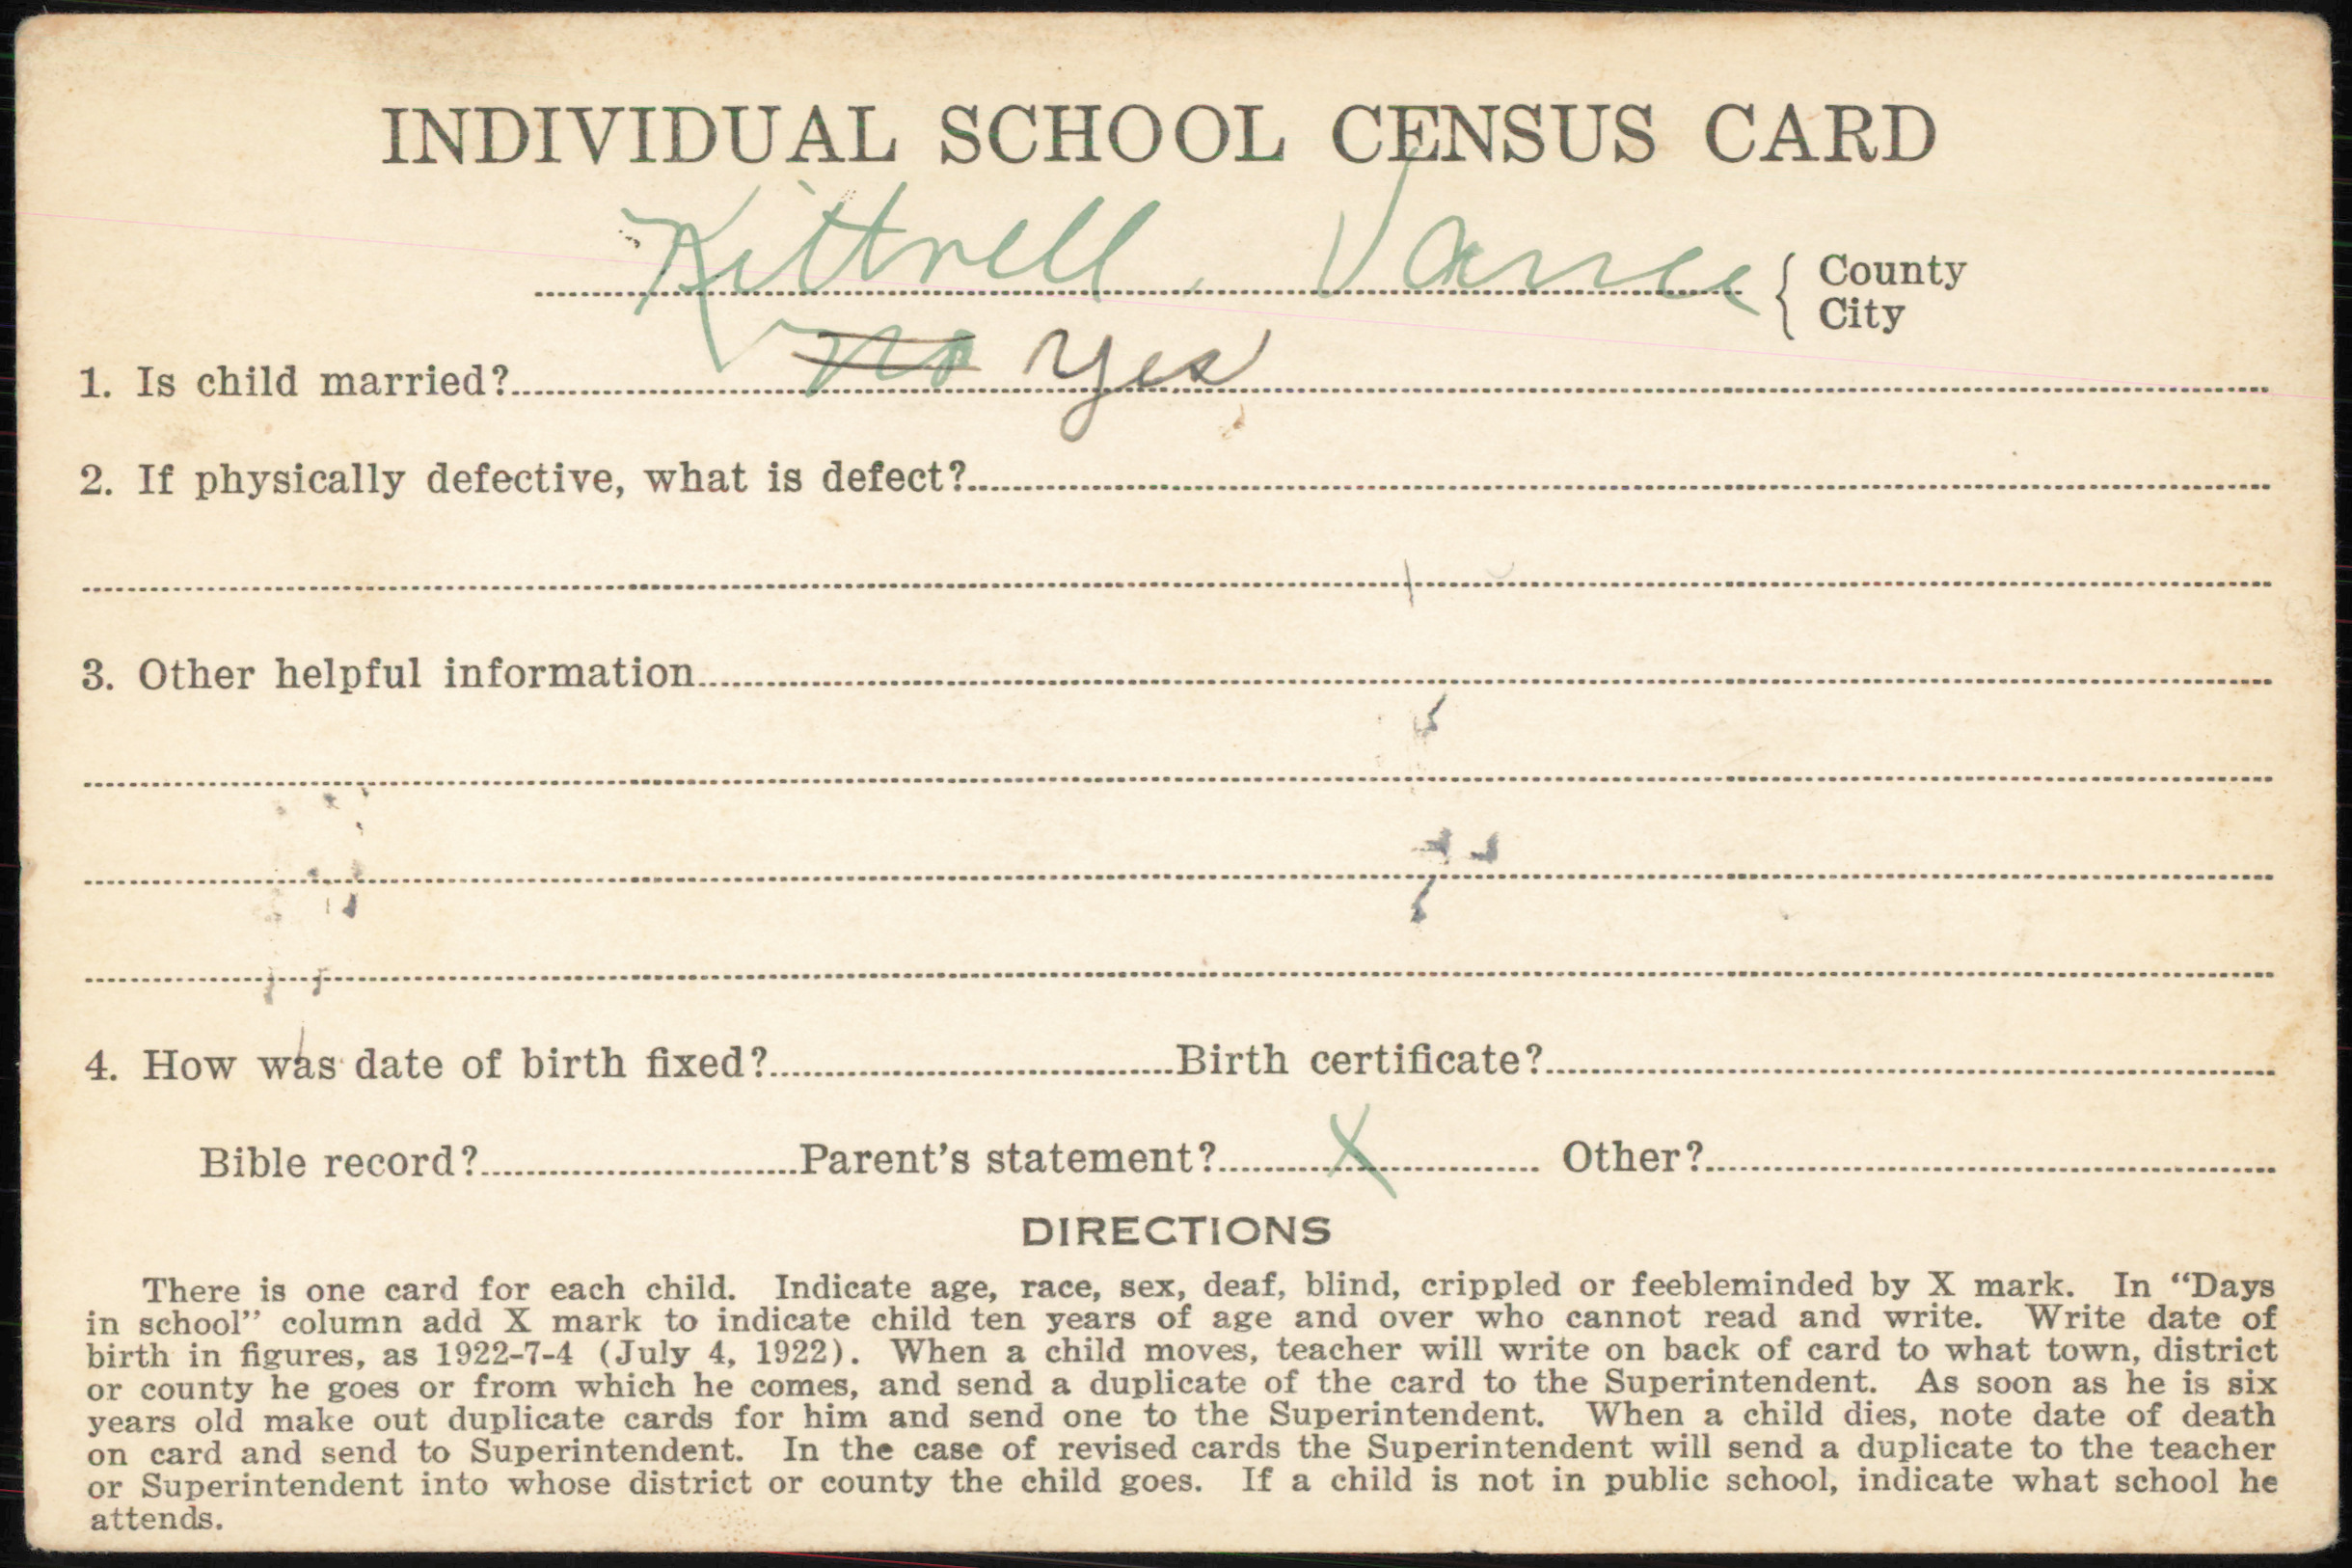 INDIVIDUAL SCHOOL CENSUS CARD
Kittrell, Vance { County
City
1. Is child married? no Yes
2. If physically defective, what is defect?
3. Other helpful information
4. How was date of birth fixed? Birth certificate?
Bible record? Parent's statement? X Other?
DIRECTIONS
There is one card for each child. Indicate age, race, sex, deaf, blind, crippled or feebleminded by X mark. In “Days
in school” column add X mark to indicate child ten years of age and over who cannot read and write. Write date of
birth in figures, as 1922-7-4 (July 4, 1922). When a child moves, teacher will write on back of card to what town, district
or county he goes or from which he comes, and send a duplicate of the card to the Superintendent. As soon as he is six
years old make out duplicate cards for him and send one to the Superintendent. When a child dies, note date of death
on card and send to Superintendent. In the case of revised cards the Superintendent will send a duplicate to the teacher
or Superintendent into whose district or county the child goes. If a child is not in public school, indicate what school he
attends.